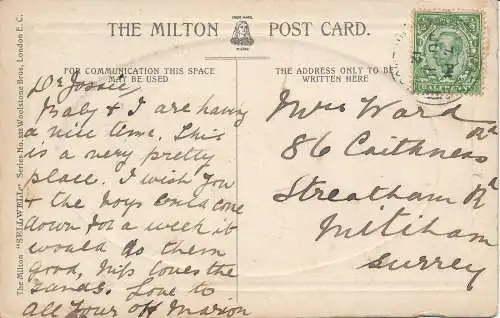 THE MILTON POST CARD.
TRADE MARK.
FOR COMMUNICATION THIS SPACE
MAY BE USED
THE ADDRESS ONLY TO BE
WRITTEN HERE
The Milton "SELLWELL" Series No. Woolstone Bros, London E.C.
HALFPENNY
Dr Jossie
Baby & I are having
a nice time. This
is a very pretty
place. I wish you
& the boys could come
down for a week it
would do them
good, Miss loves the
sands. Love to
all from Marion
Mrs Ward
86 Caithness Rd
Streatham Rd
Mitiham
Surrey